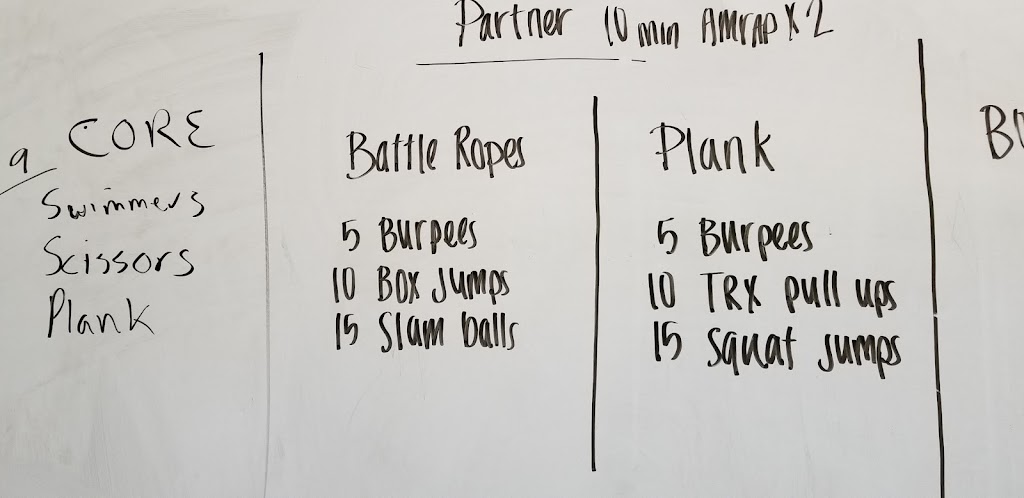 Partner 10 min AMRAP X 2
9
CORE
Swimmers
Scissors
Plank
Battle Ropes
5 Burpees
10 Box Jumps
15 Slam balls
Plank
5 Burpees
10 TRX pull ups
15 Squat Jumps